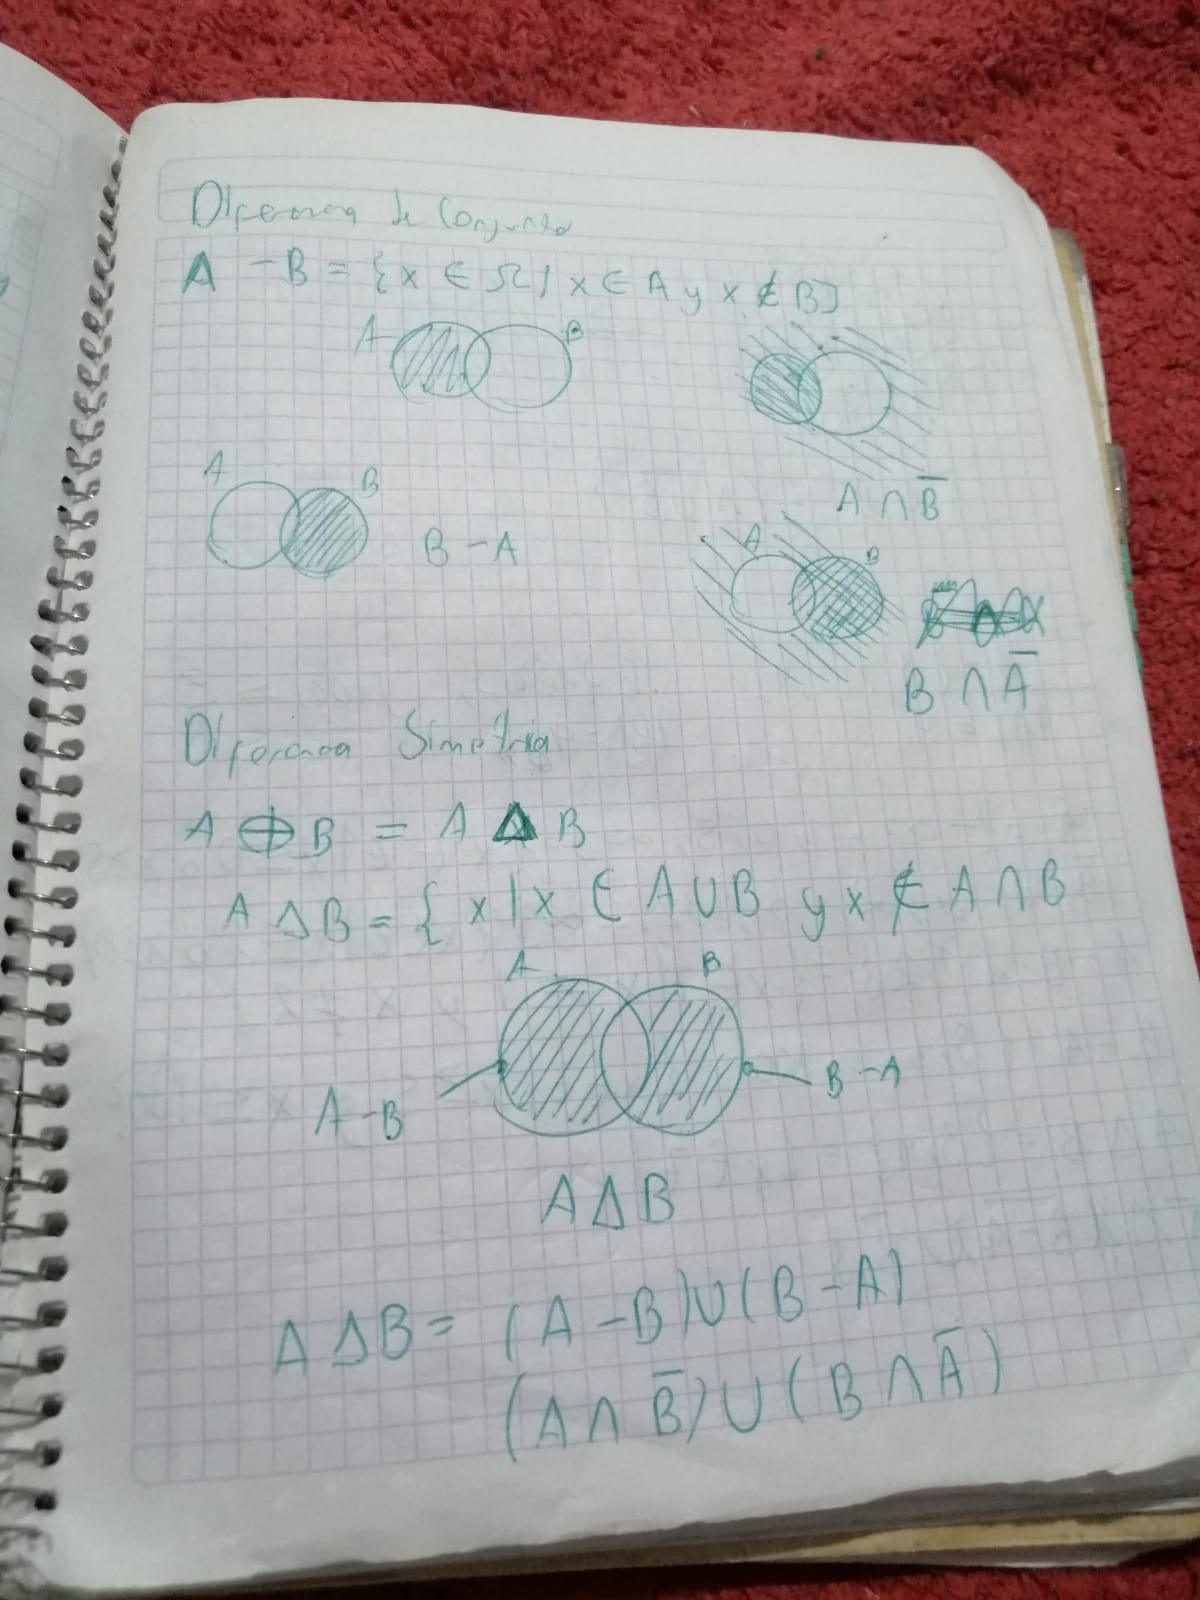 Diferencia de Conjunto
A - B = {x ∈ Ω / x ∈ A y x ∉ B}
A B
A ∩ B̅
A B
B - A
A B
B ∩ A̅
Diferencia Simetria
A ⊕ B = A Δ B
A Δ B = { x | x ∈ A ∪ B y x ∉ A ∩ B
A B
A - B
B - A
A Δ B
A Δ B = (A - B) ∪ (B - A)
(A ∩ B̅) ∪ (B ∩ A̅)